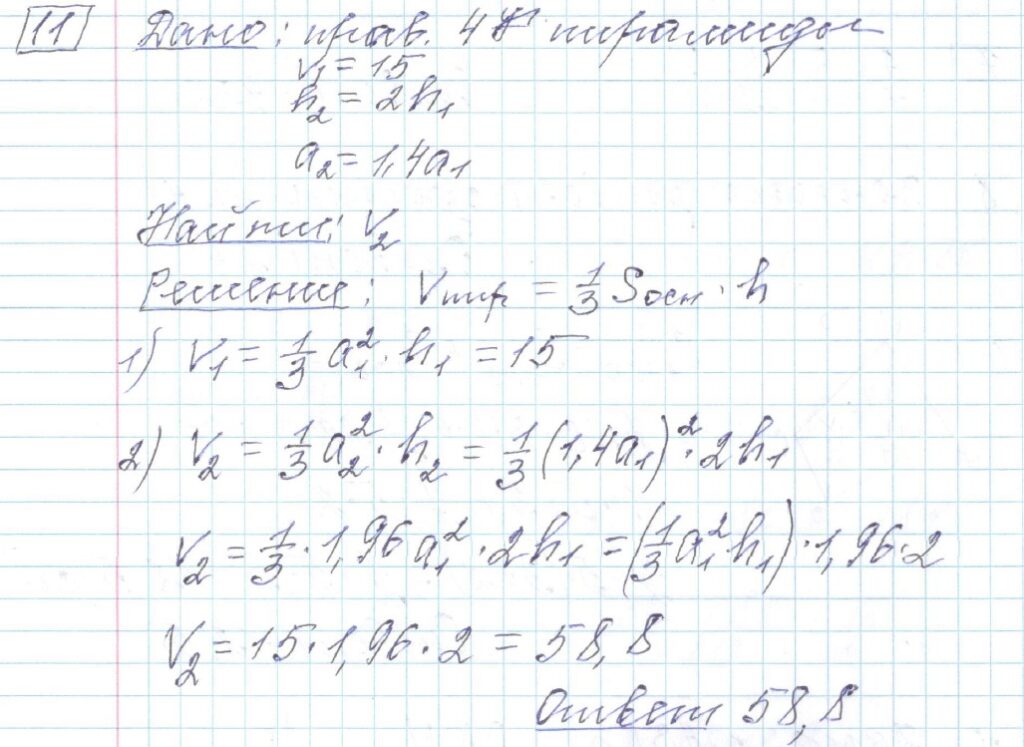 11 Дано: прав. 4х пирамиды
V₁ = 15
h₂ = 2h₁
a₂ = 1,4a₁
Найти: V₂
Решение: Vпир = 1/3 Sосн · h
1) V₁ = 1/3 a₁² · h₁ = 15
2) V₂ = 1/3 a₂² · h₂ = 1/3 (1,4a₁)² · 2h₁
V₂ = 1/3 · 1,96 a₁² · 2h₁ = (1/3 a₁² h₁) · 1,96 · 2
V₂ = 15 · 1,96 · 2 = 58,8
Ответ 58,8